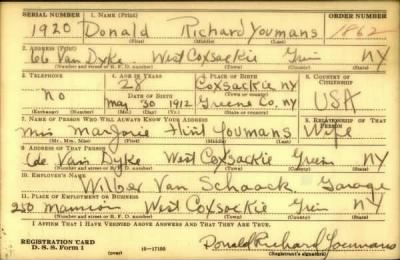 SERIAL NUMBER 1. NAME (Print) ORDER NUMBER
1920 Donald Richard Youmans 1862
(First) (Middle) (Last)
2. ADDRESS (Print)
66 Van Dyke West Coxsackie Green NY
(Number and street or R. F. D. number) (Town) (County) (State)
3. TELEPHONE 4. AGE IN YEARS 5. PLACE OF BIRTH 6. COUNTRY OF CITIZENSHIP
28 Coxsackie NY
DATE OF BIRTH (Town or county)
no May 30 1912 Greene Co, NY USA
(Exchange) (Number) (Mo.) (Day) (Yr.) (State or country)
7. NAME OF PERSON WHO WILL ALWAYS KNOW YOUR ADDRESS 8. RELATIONSHIP OF THAT PERSON
Mrs Marjorie Flint Youmans Wife
(Mr., Mrs., Miss) (First) (Middle) (Last)
9. ADDRESS OF THAT PERSON
Van Dyke West Coxsackie Green NY
(Number and street or R. F. D. number) (Town) (County) (State)
10. EMPLOYER'S NAME
Wilber Van Schaack Garage
11. PLACE OF EMPLOYMENT OR BUSINESS
250 Mansion West Coxsackie Green NY
(Number and street or R. F. D. number) (Town) (County) (State)
I AFFIRM THAT I HAVE VERIFIED ABOVE ANSWERS AND THAT THEY ARE TRUE.
REGISTRATION CARD
D. S. S. Form 1 (over) 16—17105 Donald Richard Youmans
(Registrant's signature)